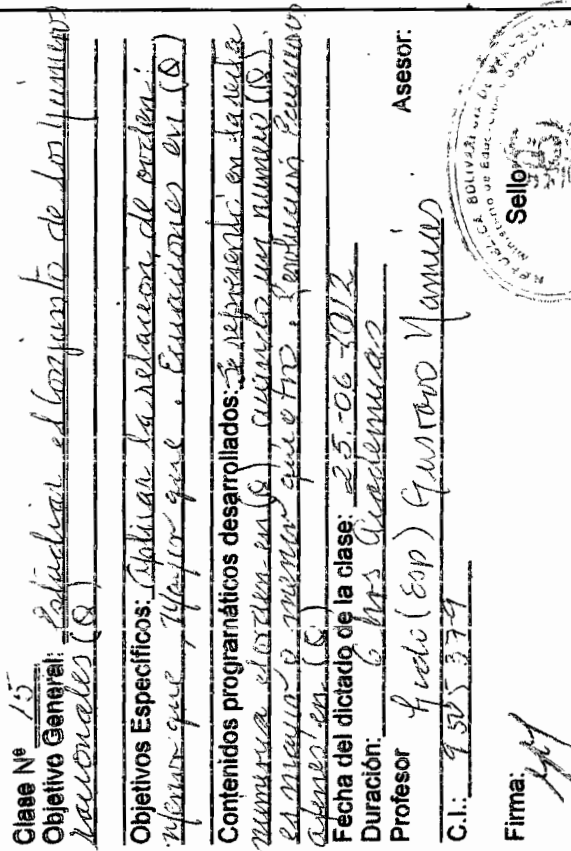 Clase Nº 15
Objetivo General: Estudiar el Conjunto de los números
racionales (Q)
Objetivos Específicos: Aplicar la relación de orden:
Menor que, Mayor que. Ecuaciones en (Q)
Contenidos programáticos desarrollados: Se representó en la recta
numerica el orden en (Q) cuando un numero (Q)
es mayor o menor que otro.
en (Q)
Fecha del dictado de la clase: 25-06-2012
Duración: 6 hrs Academicas
Profesor (Esp) Gustavo Asesor:
C.I.: 9505379
Firma: Sello
REPUBLICA BOLIVARIANA DE VENEZUELA